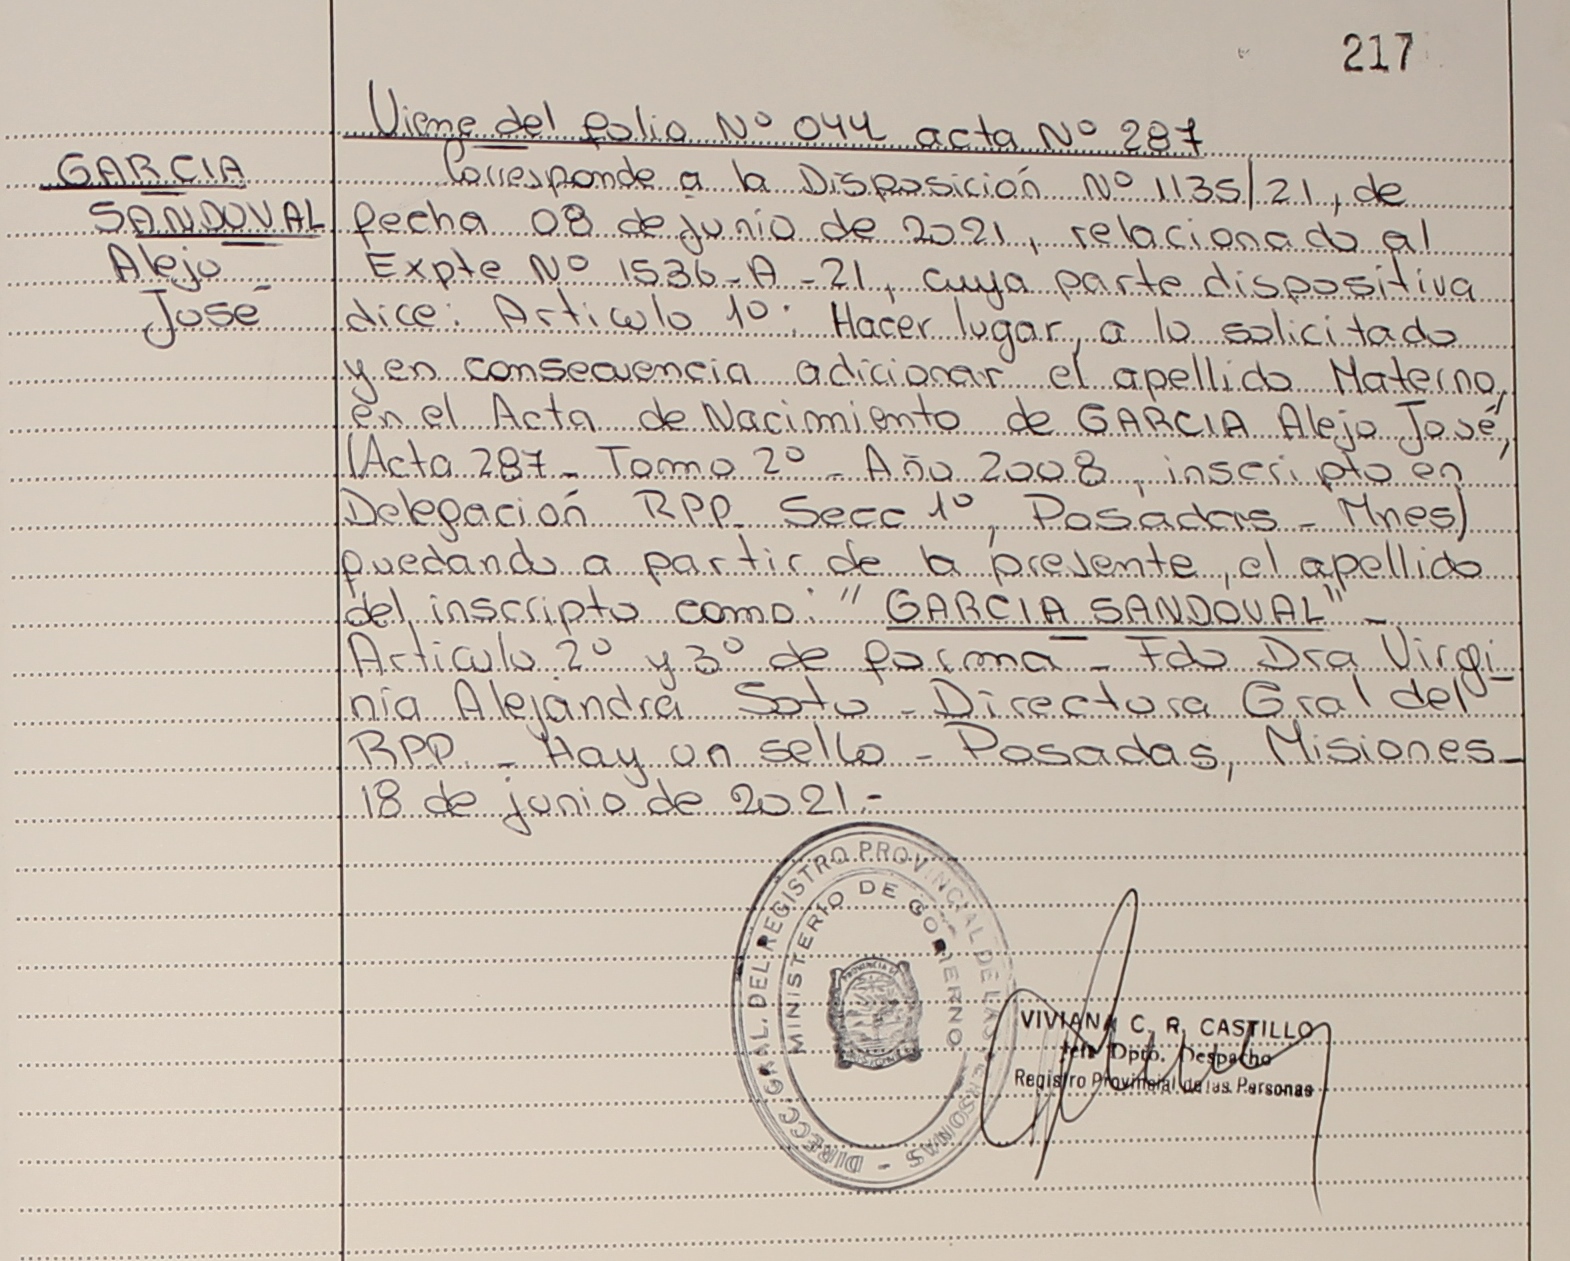 217
Viene del folio Nº 044 acta Nº 287
GARCIA
SANDOVAL
Alejo
José
Corresponde a la Disposición Nº 1135/21, de
fecha 08 de junio de 2021, relacionado al
Expte Nº 1536-A-21, cuya parte dispositiva
dice: Articulo 1º: Hacer lugar, a lo solicitado
y en consecuencia adicionar el apellido Materno,
en el Acta de Nacimiento de GARCIA Alejo José,
(Acta 287 - Tomo 2º - Año 2008, inscripto en
Delegación RPP. Secc 1º, Posadas - Mnes)
quedando a partir de la presente, el apellido
del inscripto como: "GARCIA SANDOVAL" -
Articulo 2º y 3º de forma - Fdo Dra Virgi-
nia Alejandra Soto - Directora Gral del
RPP. - Hay un sello - Posadas, Misiones -
18 de junio de 2021.-
DIRECC. GRAL. DEL REGISTRO PROVINCIAL DE LAS PERSONAS -
MINISTERIO DE GOBIERNO
PROVINCIA DE
MISIONES
VIVIANA C. R. CASTILLO
Jefe Dpto. Despacho
Registro Provincial de las Personas